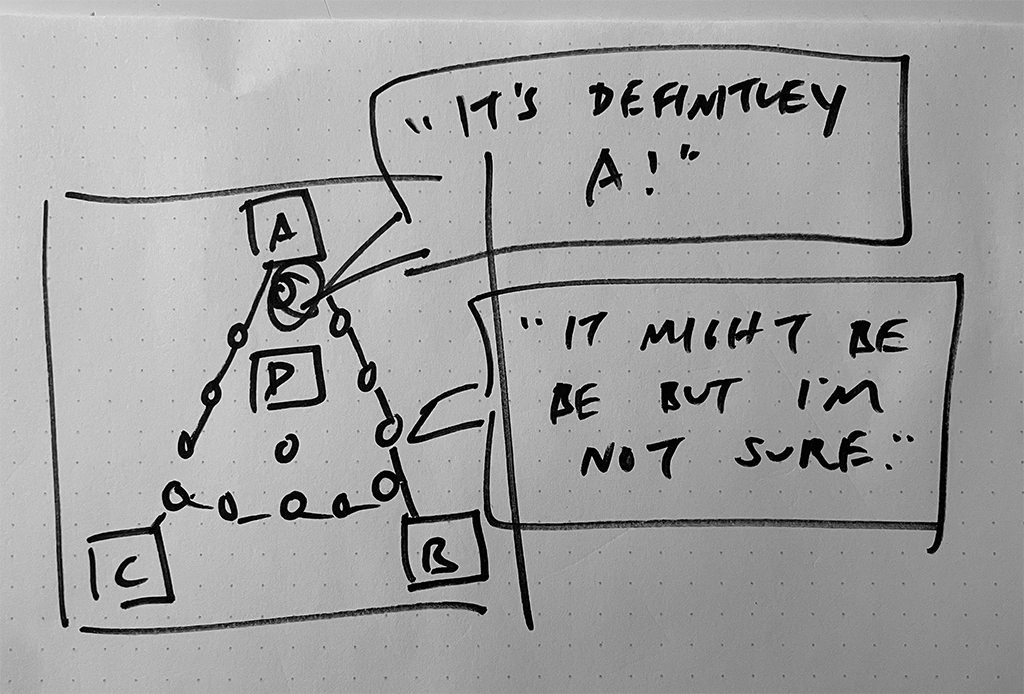 "IT'S DEFINITLEY
A!"
A
D
"IT MIGHT BE
BE BUT I'M
NOT SURE."
C
B